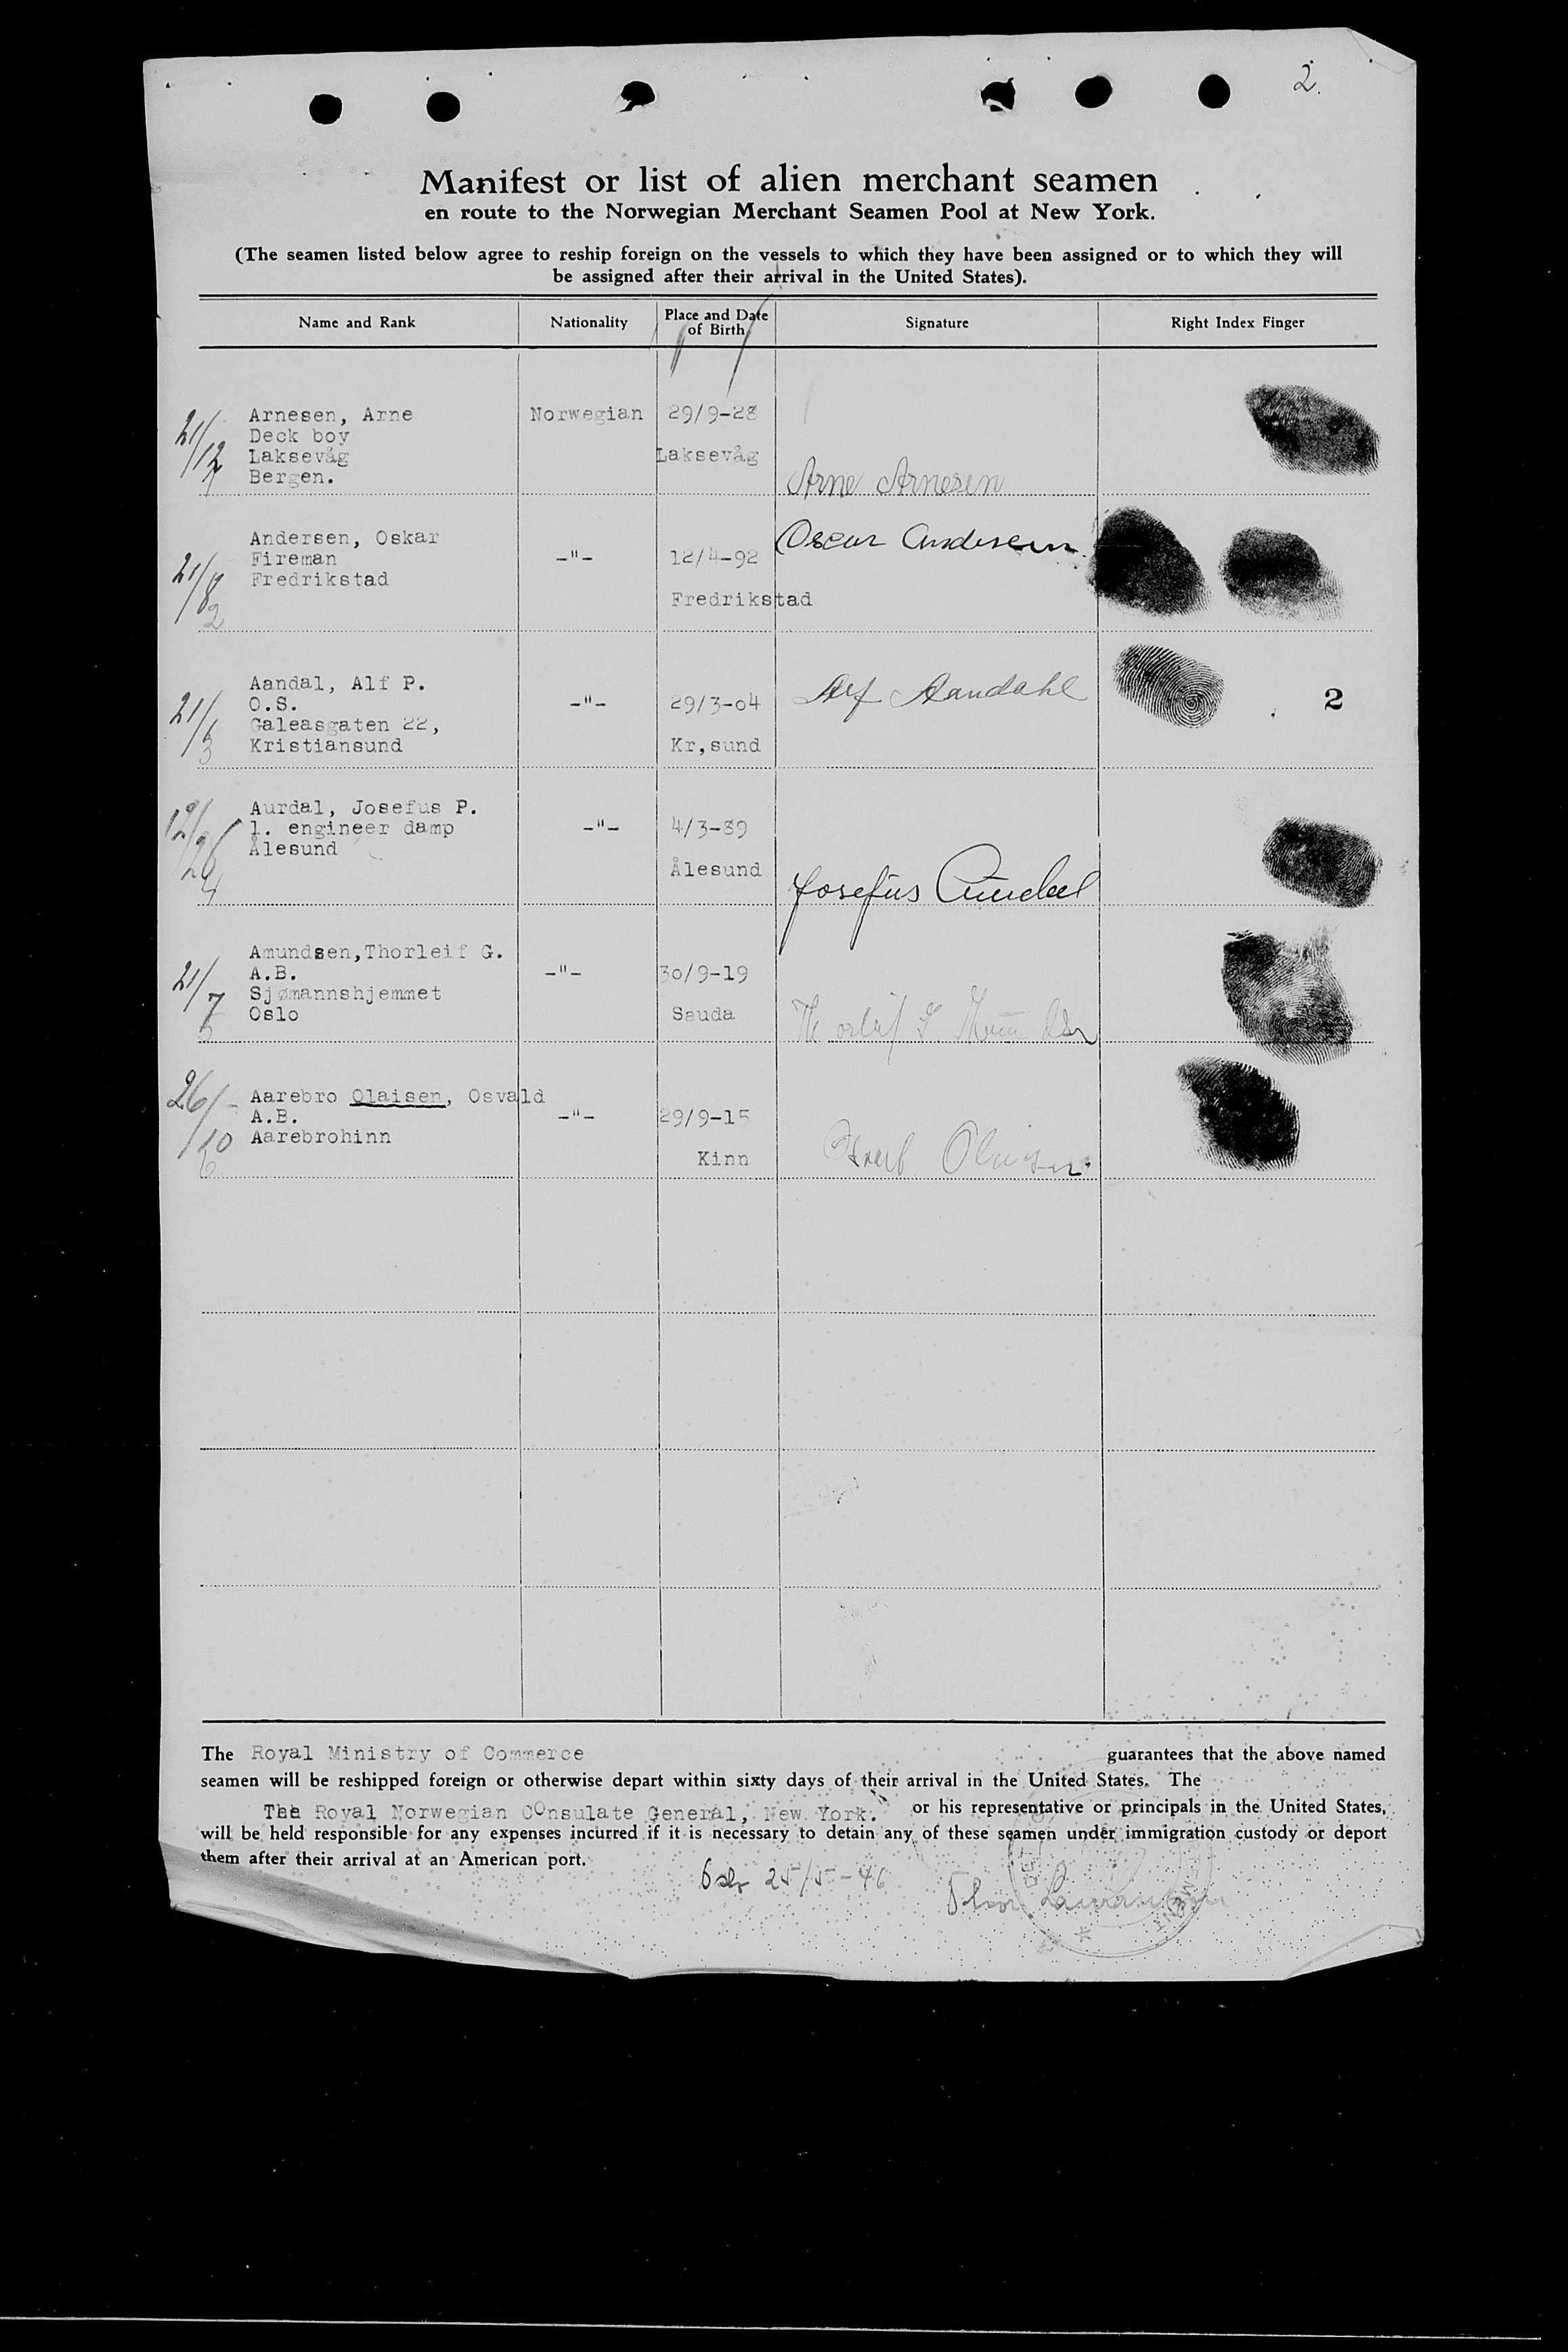 2.
Manifest or list of alien merchant seamen
en route to the Norwegian Merchant Seamen Pool at New York.
(The seamen listed below agree to reship foreign on the vessels to which they have been assigned or to which they will
be assigned after their arrival in the United States).
Name and Rank Nationality Place and Date of Birth Signature Right Index Finger
21/12 1
Arnesen, Arne Norwegian 29/9-28
Deck boy
Laksevåg Laksevåg
Bergen. Arne Arnesen
21/8 2
Andersen, Oskar Oscar Andersen
Fireman -"- 12/4-92
Fredrikstad
Fredrikstad
21/6 3
Aandal, Alf P. Alf Aandahl
O.S. -"- 29/3-04 2
Galeasgaten 22,
Kristiansund Kr,sund
12/26 4
Aurdal, Josefus P.
1. engineer damp -"- 4/3-89
Ålesund Ålesund
Josefus Aurdal
21/7 5
Amundsen,Thorleif G.
A.B. -"- 30/9-19
Sjømannshjemmet
Oslo Sauda
Thorleif G Amundsen
26/10 6
Aarebro Olaisen, Osvald
A.B. -"- 29/9-15
Aarebrohinn
Kinn Olaisen
The Royal Ministry of Commerce guarantees that the above named
seamen will be reshipped foreign or otherwise depart within sixty days of their arrival in the United States. The
The Royal Norwegian COnsulate General, New York. or his representative or principals in the United States,
will be held responsible for any expenses incurred if it is necessary to detain any of these seamen under immigration custody or deport
them after their arrival at an American port.
Oslo 25/5-46